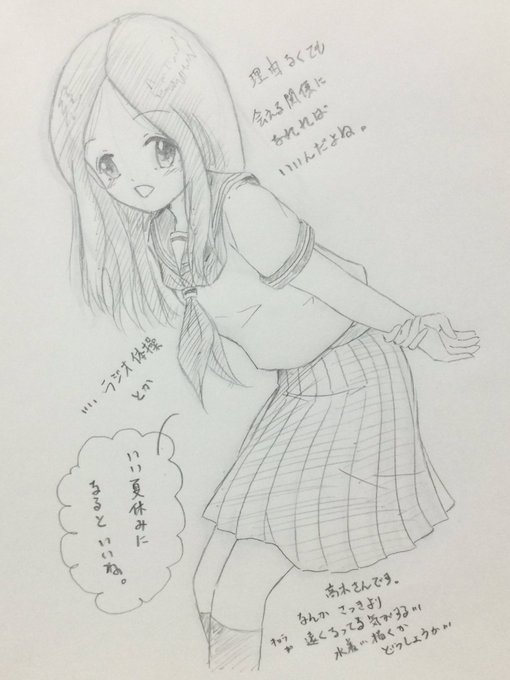 理由なくても
会える関係に
なれれば
いいんだよね。
ラジオ体操
とか
いい夏休みに
なるといいね。
高木さんです。
なんかさっきより
遠くなってる気がする
水着 描くか
どっしょうか